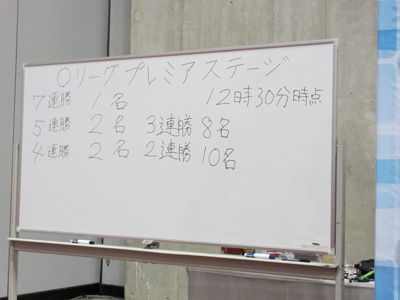 ○リーグプレミアステージ
7連勝 1名 12時30分時点
5連勝 2名 3連勝 8名
4連勝 2名 2連勝 10名